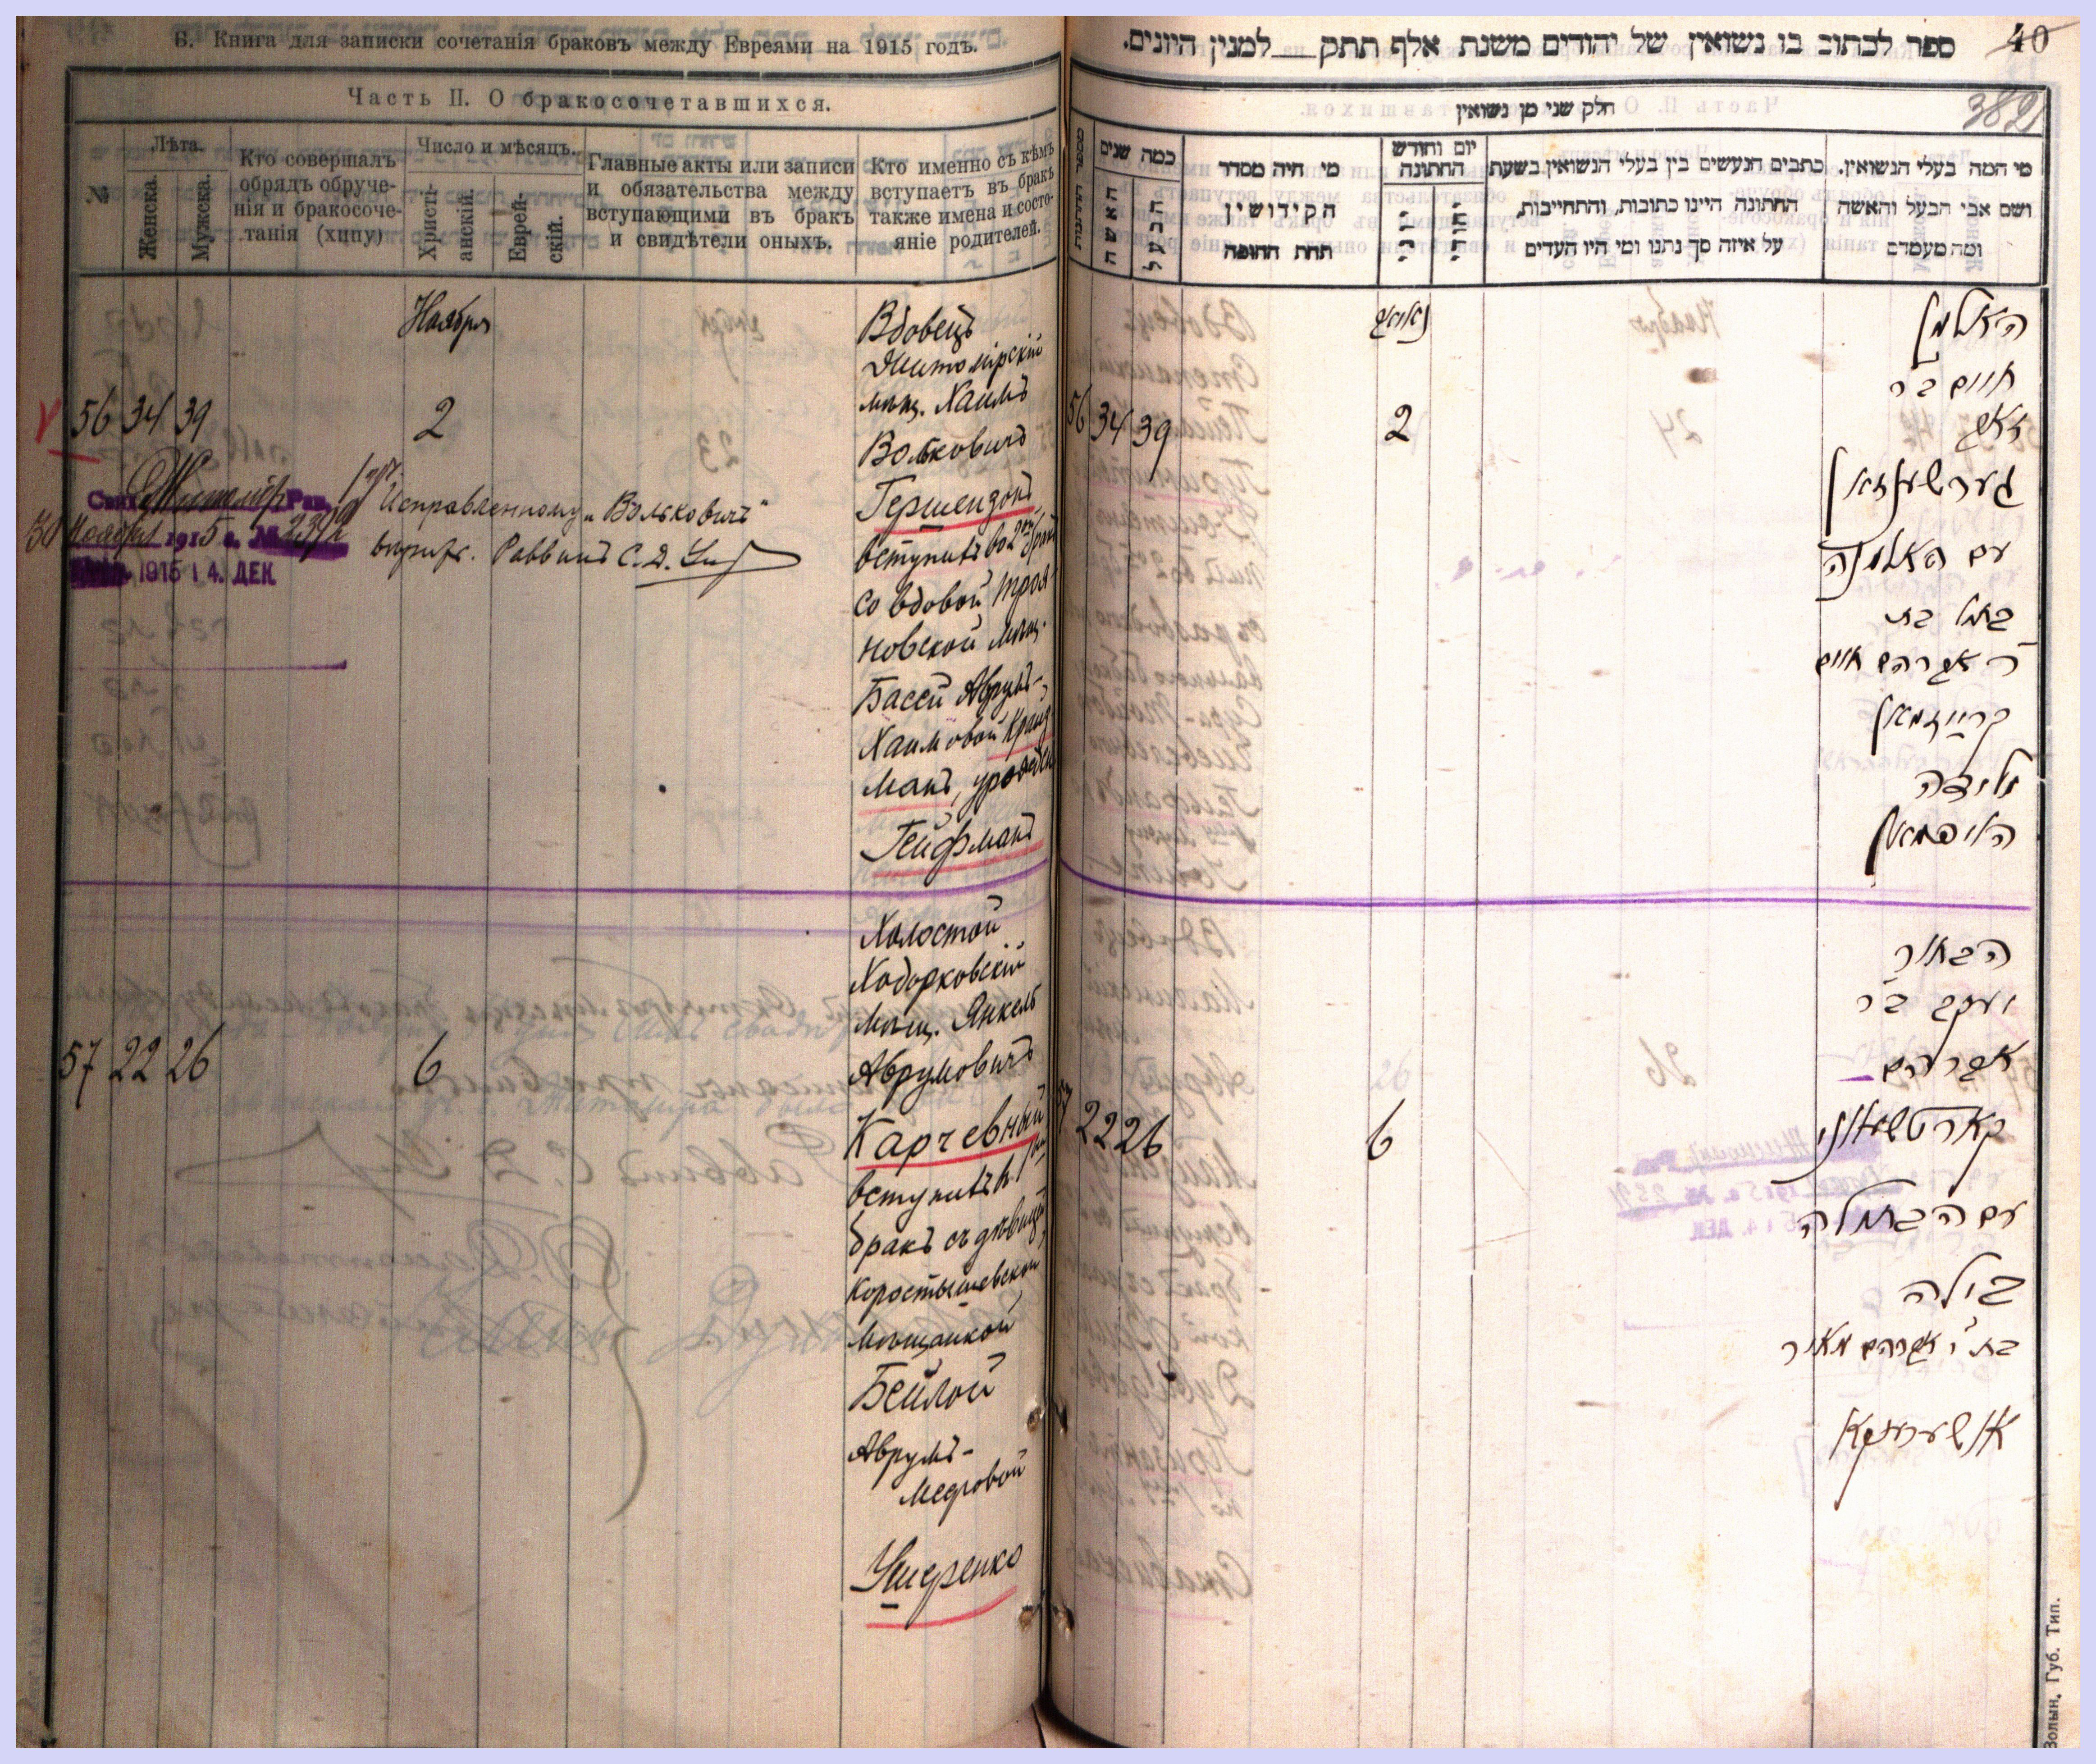 Б. Книга для записки сочетанія браковъ между Евреями на 1915 годъ.
Часть II. О бракосочетавшихся.
№
Лѣта.
Женска.
Мужска.
Кто совершалъ
обрядъ обруче-
нія и бракосоче-
танія (хипу)
Число и мѣсяцъ.
Христі-
анскій.
Еврей-
скій.
Главные акты или записи
и обязательства между
вступающими въ бракъ
и свидѣтели оныхъ.
Кто именно съ кѣмъ
вступаетъ въ бракъ
также имена и состо-
яніе родителей.
Ноября
56 34 39
2
Вдовецъ
Житомірскій
мѣщ. Хаимъ
Вольковичъ
Гершензонъ
вступилъ во 2ой бракъ
со вдовой Троя-
новской мѣщ.
Бассей Аврумъ-
Хаимовой Крайз-
манъ, урожден
Гейфманъ
Житомір Рав.
30 Ноября 1915 г. №
1915 14. ДЕК
Исправленному „Вольковичъ"
Раввинъ С. Д.
57 22 26
6
Холостой
Ходорковскій
мѣщ. Янкель
Аврумовичъ
Карчевный
вступилъ въ 1ый
бракъ съ дѣвицей
Коростышевской
мѣщанкой
Бейлой
Аврумъ-
Мееровой
Ушеренко
40
ספר לכתוב בו נשואין של יהודים משנת אלף תתק למנין היונים.
382
חלק שני מן נשואין
כמה שנים
האשה
הבעל
מי היה מסדר
הקידושין
תחת החופה
יום וחודש
החתונה
כתבים הנעשים בין בעלי הנשואין בשעת
החתונה היינו כתובות, והתחייבות,
על איזה סך נתנו ומי היו העדים
מי המה בעלי הנשואין.
ושם אבי הבעל והאשה
ומה מעמדם
56 34 39
2
האלמן
חיים בר
זאב
גערשענזאן
עם האלמנה
בתל בת
ר' אברהם חיים
קרייזמאן
ילידה
הייפמאן
57 22 26
6
הבחור
יעקב ב"ר
אברהם
קארטשעווני
עם הבתולה
ביילה
בת ר' אברהם מאיר
אושערענקא
Волын. Губ. Тип.